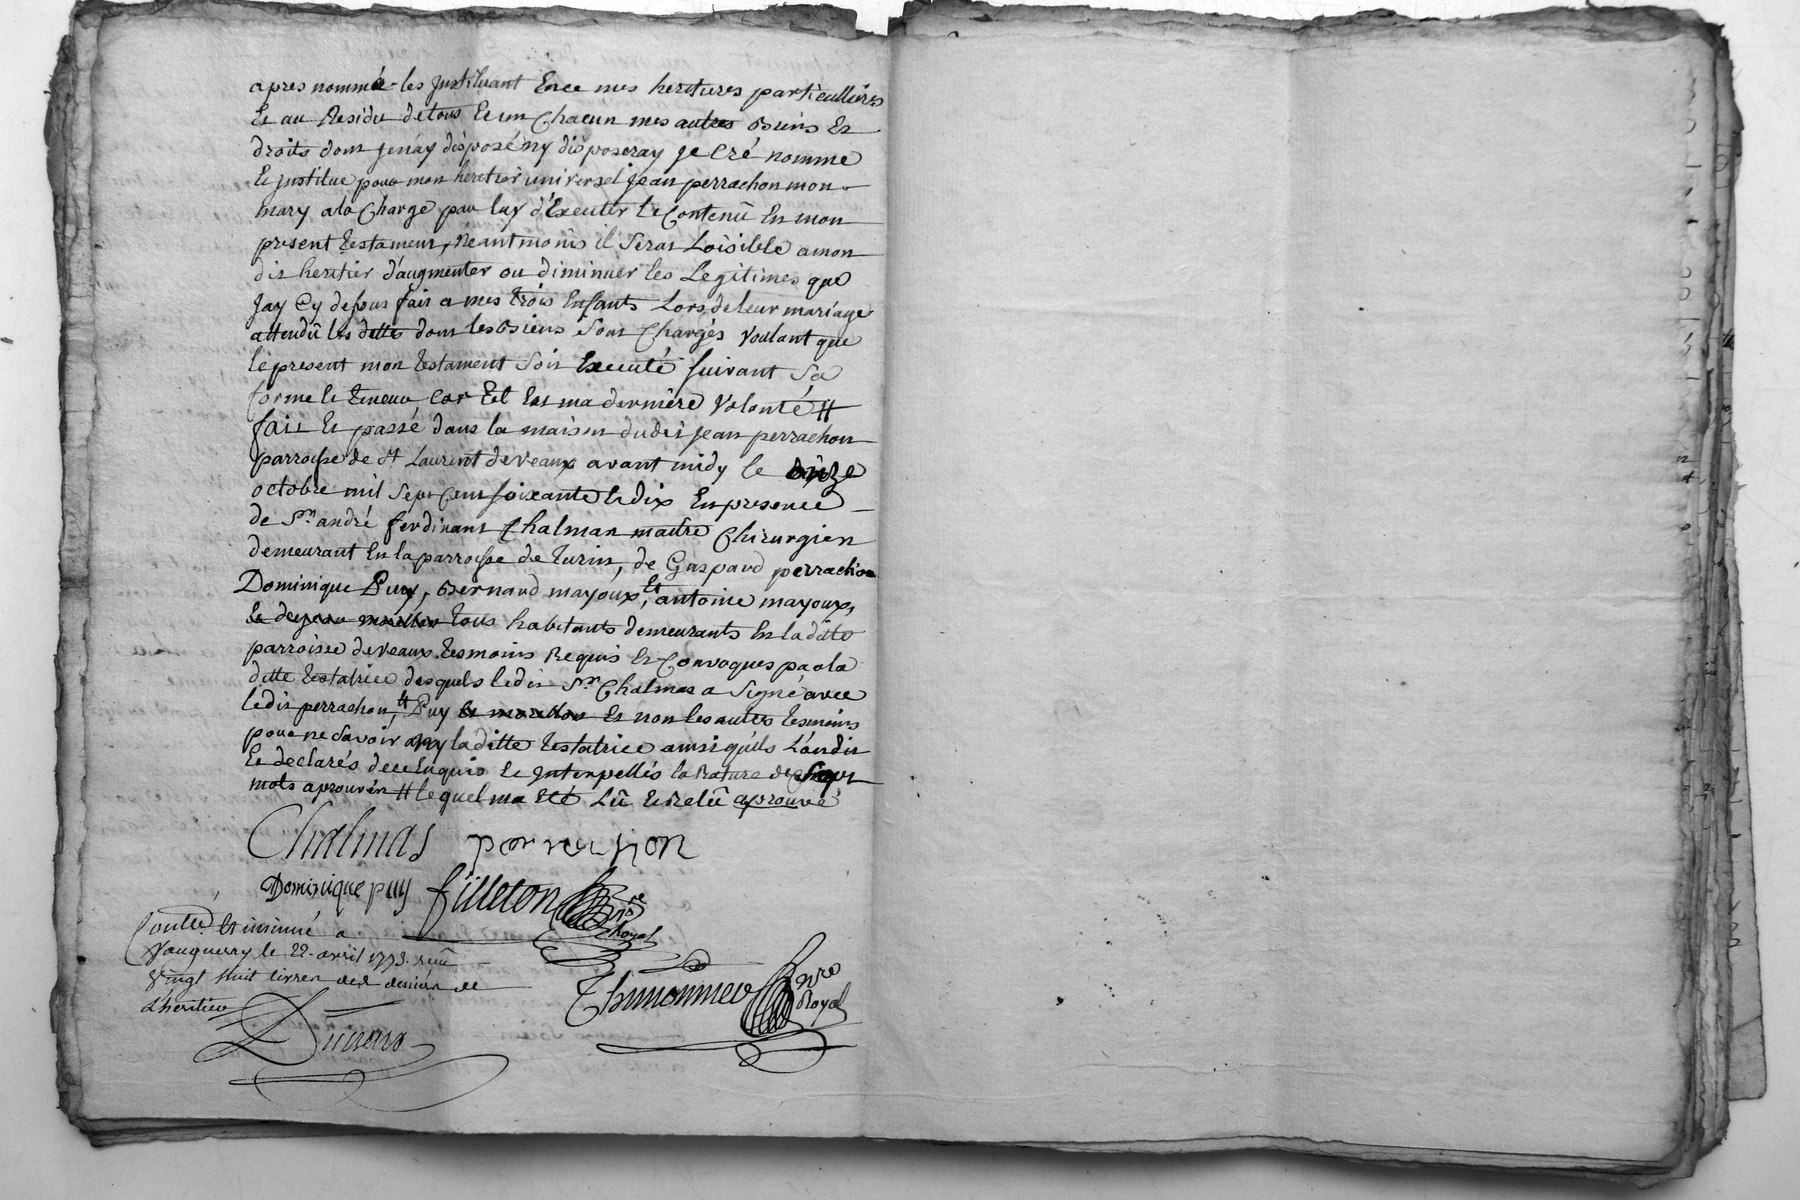 apres nommé les Justituant Ence mes heritieres particullieres
Et au Residu de tous Et un Chacun mes autres Biens Et
droits dont Jenáy disposé ny disposeray Je Cré nomme
Et Justitue pour mon heritier universel Jean perrachon mon
mary ala Charge par luy d'Executer le Contenû En mon
present testament, Neantmoins il Seras Loisible amon
dit heritier d'augmenter ou diminuer les Legitimes que
Jay Cy dessus fait a mes trois Enfants Lors de leur mariage
attendû les dettes dont les Biens Sont Chargés Voulant que
le present mon testament Soit Executé suivant Sa
forme Et teneur Car tel Est ma derniere Volonté #
fait Et passé dans la maison dudit Jean perrachon
parroisse de St Laurent deveaux avant midy le onze
octobre mil Sept Cent soixante Et dix En presence
de Sr. andré ferdinant Chalmas maitre Chirurgien
demeurant En la parroisse de turin, de Gaspard perrachon
Dominique Puy, Bernard mayoux, Et antoine mayoux,
tous habitants demeurants En la ditte
parroisse deveaux. tesmoins Requis Et Convoques par la
ditte testatrice desquels ledit Sr. Chalmas a Signé avec
ledit perrachon, Et Puy Et non les autres tesmoins
pour ne Savoir ny laditte testatrice ainsi qu'ils L'ondit
Et declarés dece Enquis Et Interpellés la Rature de Sept
mots aprouvée # lequel ma Eté Lû Et Relû aprouvé
Chalmas perrachon
Dominique puy filleton nre
Royal
Contlé Et insinué a
Vaugneray le 22. avril 1773. reçû
Vingt huit livres des deniers de
L'heritier
Thimonnier Nre
Royal